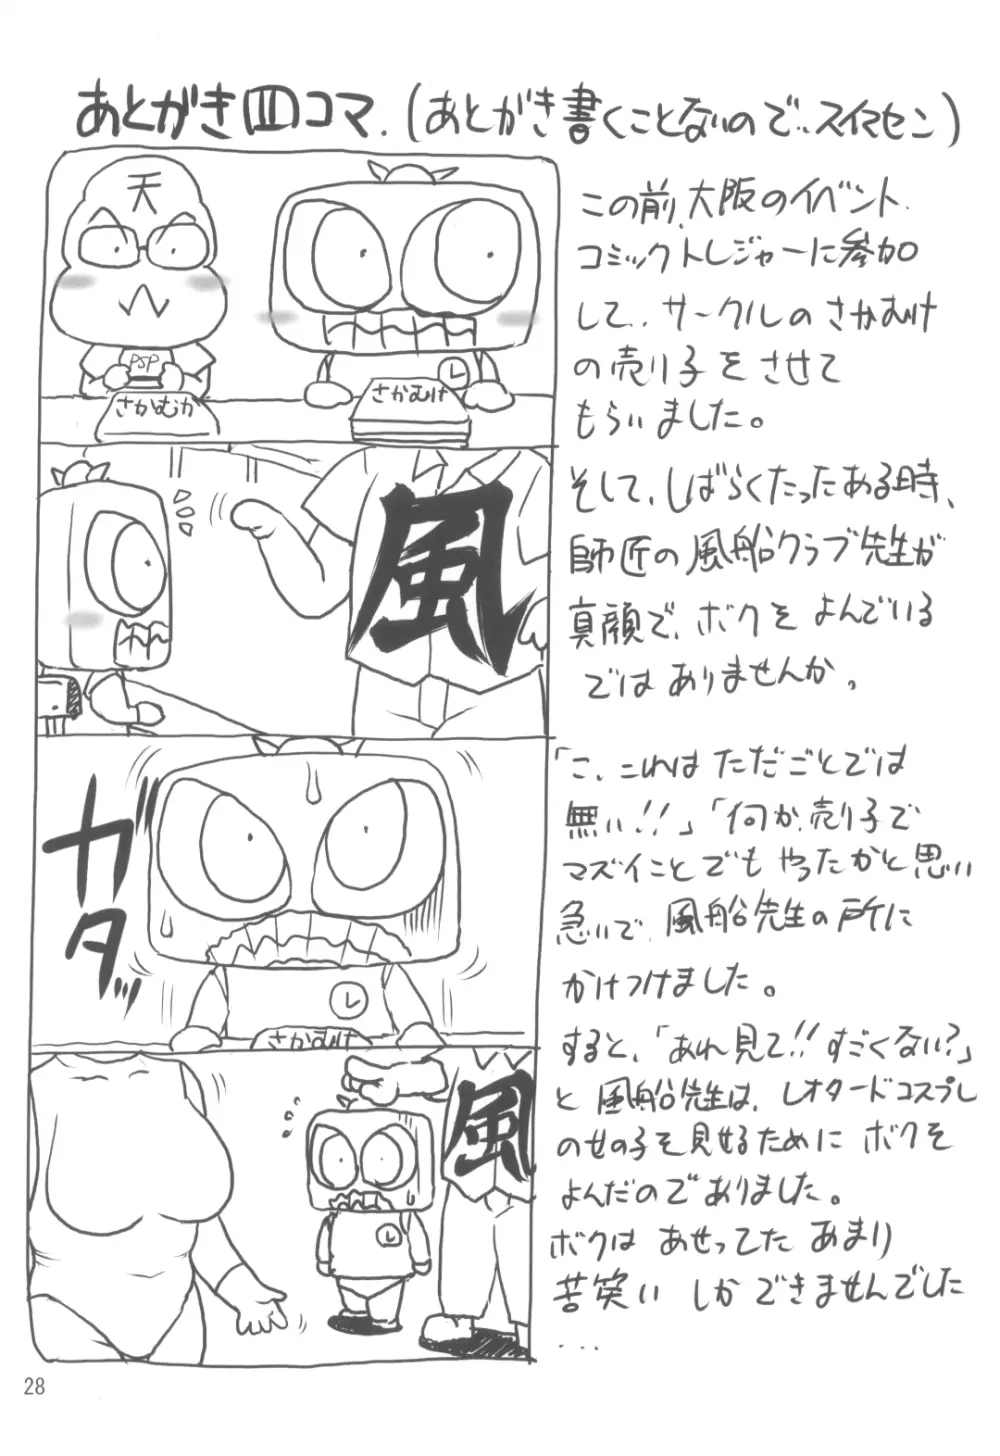 あとがき四コマ.(あとがき書くことないので‥スイマセン)
天
PSP
さかむか
さかむけ
レ
この前、大阪のイベント、
コミックトレジャーに参加
して、サークルのさかむけ
の売り子をさせて
もらいました。
風
そして、しばらくたったある時、
師匠の風船クラブ先生が
真顔で、ボクをよんでいる
ではありませんか。
ガタッ
レ
さかむけ
「こ、これはただごとでは
無い!!」「何か、売り子で
マズイことでもやったかと思い
急いで、風船先生の所に
かけつけました。
風
レ
すると、「あれ見て!!すごくない?」
と風船先生は、レオタードコスプレ
の女の子を見せるためにボクを
よんだのでありました。
ボクはあせってたあまり
苦笑いしかできませんでした
...
28